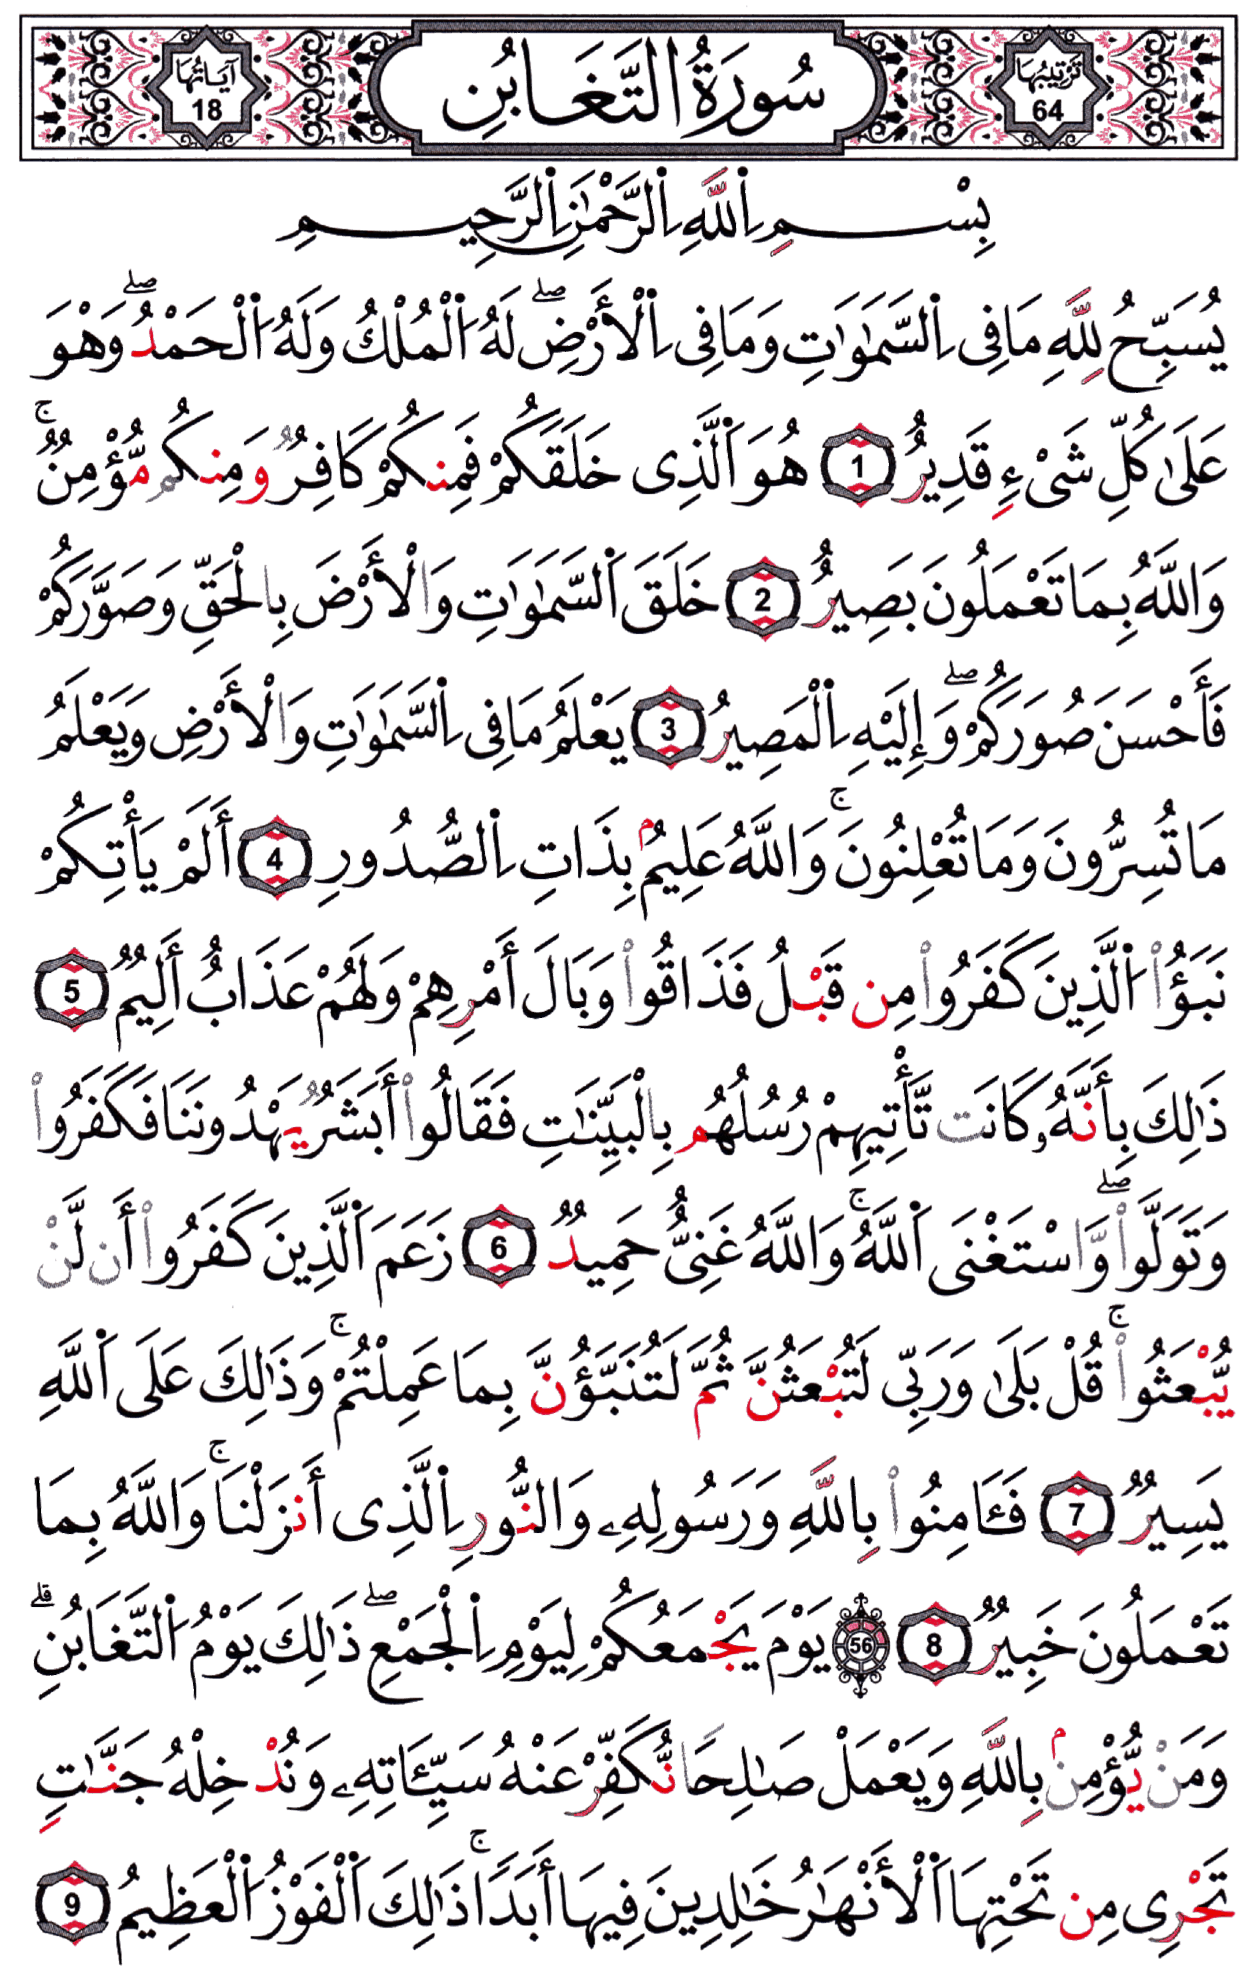 تَرْتِيبُهَا 64 سُورَةُ التَّغَابُنِ آيَاتُهَا 18
بِسْمِ اِ۬للَّهِ اِ۬لرَّحْمَٰنِ اِ۬لرَّحِيمِ
يُسَبِّحُ لِلَّهِ مَا فِى اِ۬لسَّمَٰوَٰتِ وَمَا فِى اِ۬لْأَرْضِۖ لَهُ اُ۬لْمُلْكُ وَلَهُ اُ۬لْحَمْدُۖ وَهْوَ
عَلَىٰ كُلِّ شَىْءٍ قَدِيرٌ 1 هُوَ اَ۬لَّذِى خَلَقَكُمْ فَمِنكُمْ كَافِرٌ وَمِنكُم مُّؤْمِنٌۚ
وَاللَّهُ بِمَا تَعْمَلُونَ بَصِيرٌ 2 خَلَقَ اَ۬لسَّمَٰوَٰتِ وَالْأَرْضَ بِالْحَقِّ وَصَوَّرَكُمْ
فَأَحْسَنَ صُوَرَكُمْۖ وَإِلَيْهِ اِ۬لْمَصِيرُ 3 يَعْلَمُ مَا فِى اِ۬لسَّمَٰوَٰتِ وَالْأَرْضِ وَيَعْلَمُ
مَا تُسِرُّونَ وَمَا تُعْلِنُونَۚ وَاللَّهُ عَلِيمُۢ بِذَاتِ اِ۬لصُّدُورِ 4 أَلَمْ يَأْتِكُمْ
نَبَؤُا۟ اُ۬لَّذِينَ كَفَرُوا۟ مِن قَبْلُ فَذَاقُوا۟ وَبَالَ أَمْرِهِمْ وَلَهُمْ عَذَابٌ أَلِيمٌ 5
ذَٰلِكَ بِأَنَّهُۥ كَانَت تَّأْتِيهِمْ رُسُلُهُم بِالْبَيِّنَٰتِ فَقَالُوا۟ أَبَشَرٌ يَهْدُونَنَا فَكَفَرُوا۟
وَتَوَلَّوا۟ۖ وَّاسْتَغْنَى اَ۬للَّهُۚ وَاللَّهُ غَنِىٌّ حَمِيدٌ 6 زَعَمَ اَ۬لَّذِينَ كَفَرُوا۟ أَن لَّنْ
يُّبْعَثُوا۟ۚ قُلْ بَلَىٰ وَرَبِّى لَتُبْعَثُنَّ ثُمَّ لَتُنَبَّؤُنَّ بِمَا عَمِلْتُمْۚ وَذَٰلِكَ عَلَى اَ۬للَّهِ
يَسِيرٌ 7 فَـَٔامِنُوا۟ بِاللَّهِ وَرَسُولِهِۦ وَالنُّورِ اِ۬لَّذِى أَنزَلْنَاۚ وَاللَّهُ بِمَا
تَعْمَلُونَ خَبِيرٌ 8 56 يَوْمَ يَجْمَعُكُمْ لِيَوْمِ اِ۬لْجَمْعِۖ ذَٰلِكَ يَوْمُ اُ۬لتَّغَابُنِۗ
وَمَنْ يُّؤْمِنۢ بِاللَّهِ وَيَعْمَلْ صَٰلِحًا نُّكَفِّرْ عَنْهُ سَيِّـَٔاتِهِۦ وَنُدْخِلْهُ جَنَّٰتٍ
تَجْرِى مِن تَحْتِهَا اَ۬لْأَنْهَٰرُ خَٰلِدِينَ فِيهَا أَبَدًاۚ ذَٰلِكَ اَ۬لْفَوْزُ اُ۬لْعَظِيمُ 9